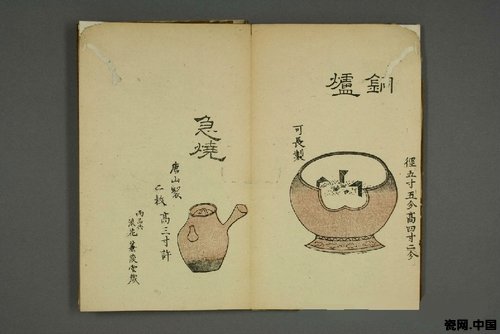 銅爐
徑五寸五分高四寸二分
可長製
急燒
唐山製
二枚 高三寸許
浪花 蒹葭堂藏
瓷网.中国